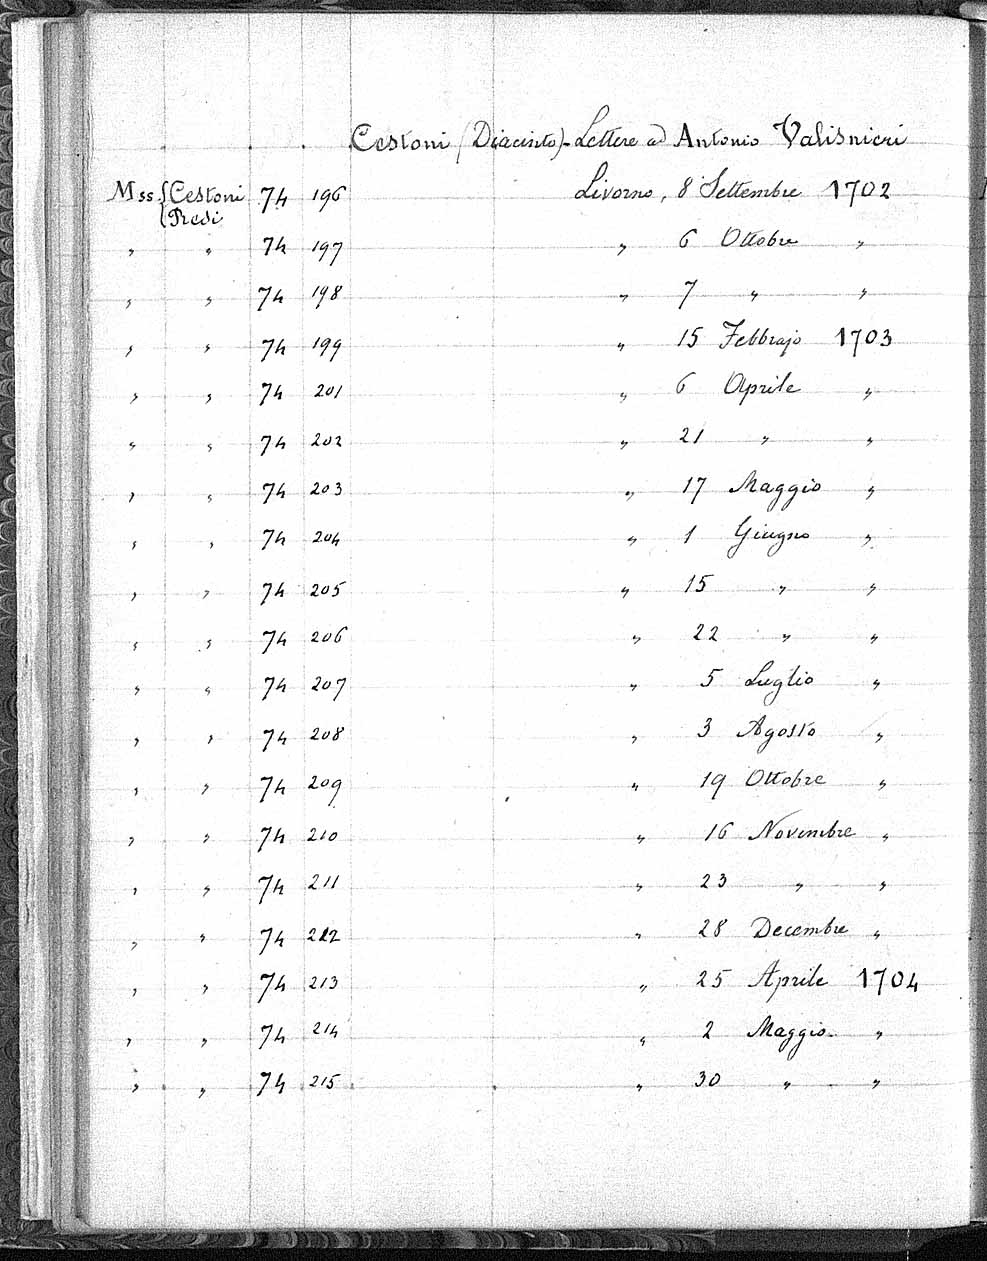 Cestoni (Diacinto) - Lettere ad Antonio Valisnieri
Mss. { Cestoni 74 196 Livorno, 8 Settembre 1702
{ Presi
" " 74 197 " 6 Ottobre "
" " 74 198 " 7 " "
" " 74 199 " 15 Febbrajo 1703
" " 74 201 " 6 Aprile "
" " 74 202 " 21 " "
" " 74 203 " 17 Maggio "
" " 74 204 " 1 Giugno "
" " 74 205 " 15 " "
" " 74 206 " 22 " "
" " 74 207 " 5 Luglio "
" " 74 208 " 3 Agosto "
" " 74 209 " 19 Ottobre "
" " 74 210 " 16 Novembre "
" " 74 211 " 23 " "
" " 74 212 " 28 Decembre "
" " 74 213 " 25 Aprile 1704
" " 74 214 " 2 Maggio "
" " 74 215 " 30 " "